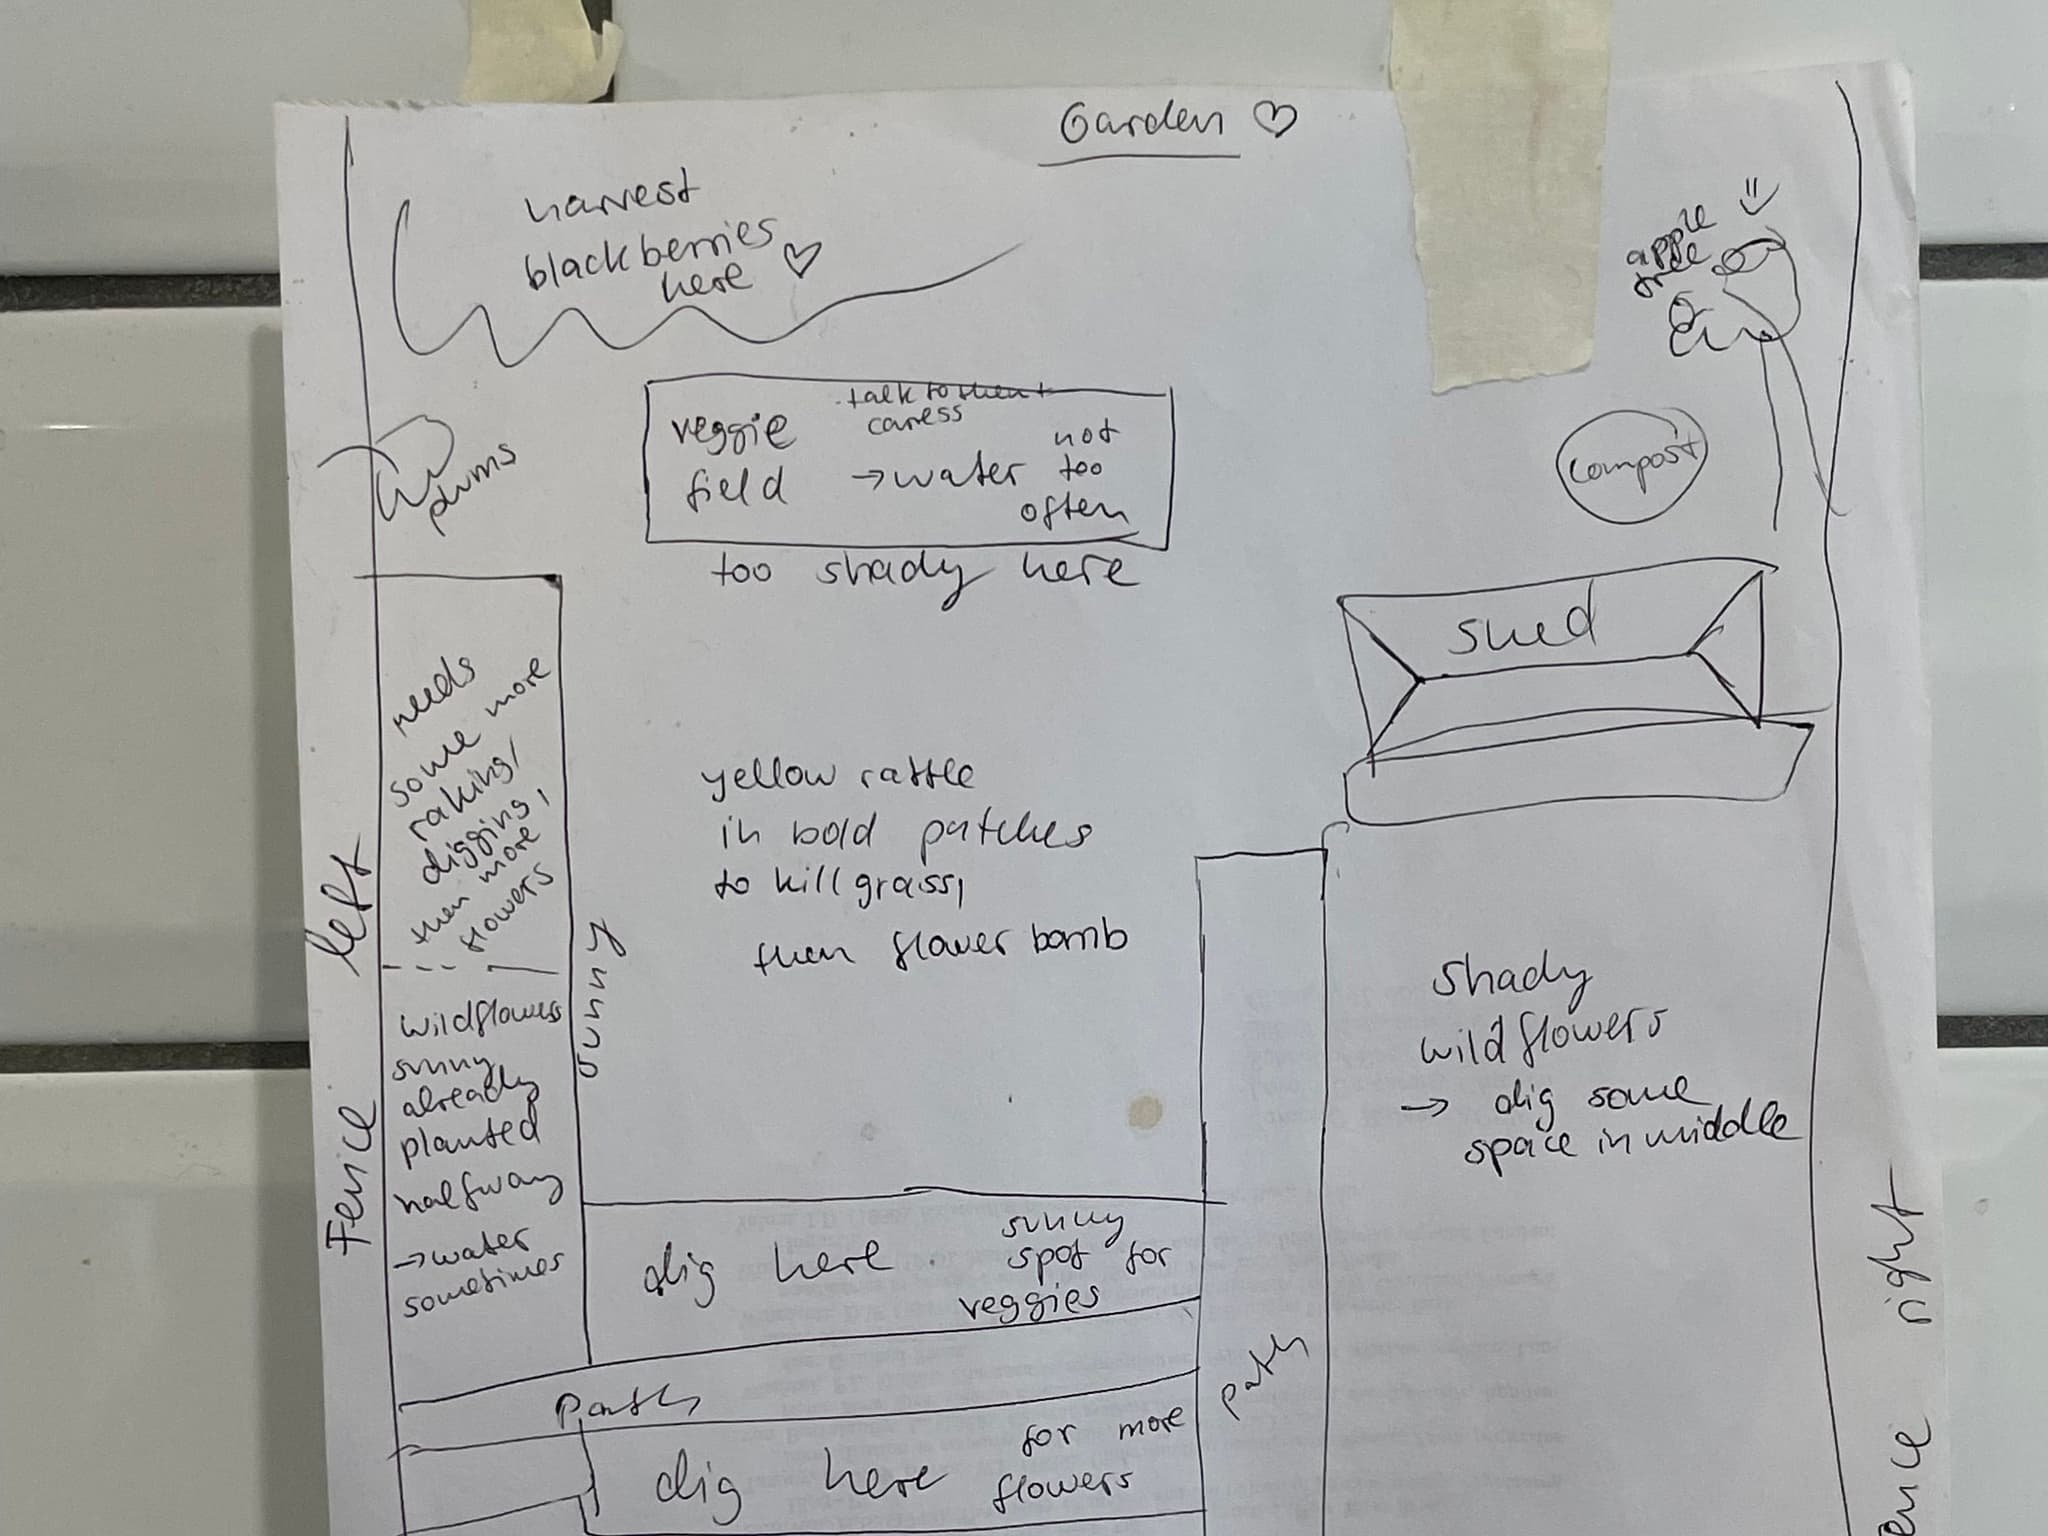 Garden ♡
harvest
blackberries
here ♡
apple
tree
veggie
field
talk to them +
caress
→ water not
too
often
plums
compost
too shady here
shed
needs
some more
raking/
digging,
then more
flowers
yellow rattle
in bold patches
to kill grass,
then flower bomb
Fence left
sunny
wildflowers
sunny
already
planted
halfway
→ water
sometimes
shady
wildflowers
→ dig some
space in middle
dig here
sunny
spot for
veggies
path
path
dig here
for more
flowers
Fence right